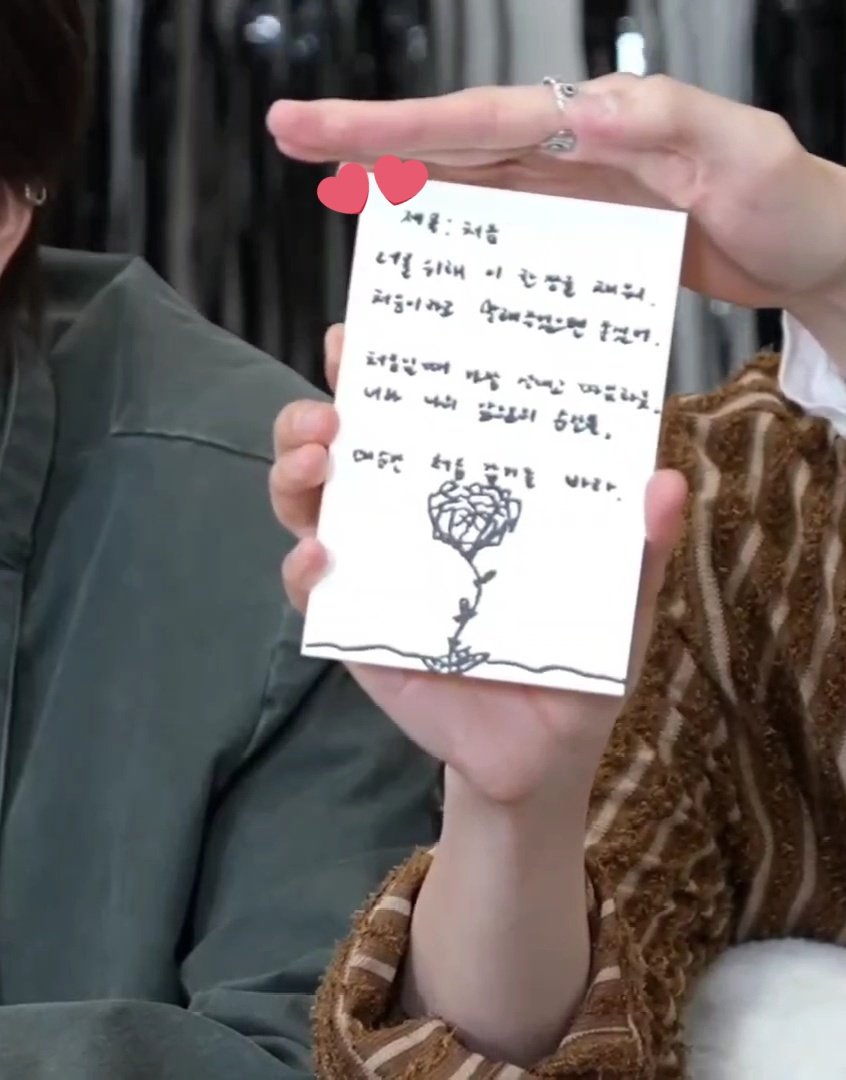 제목: 처음
너를 위해 이 한 장을 채워.
처음이라고 말해주었으면 좋겠어.
처음일때 가장 설레고 따뜻하듯,
너와 나의 모든 순간들,
매순간 처음 같기를 바라.